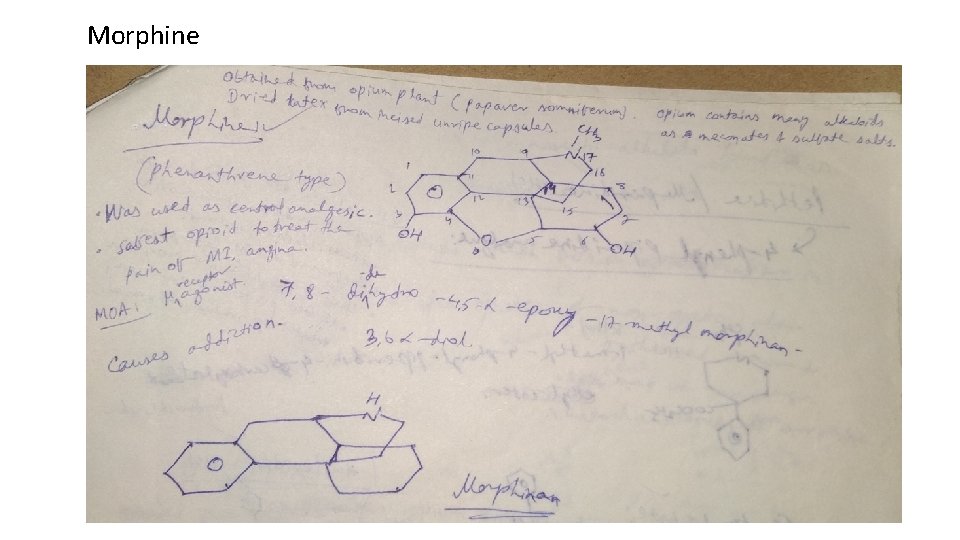 Morphine
Obtained from opium plant (Papaver somniferum). Opium contains many alkaloids
Dried latex from incised unripe capsules.
as meconates & sulfate salts.
Morphine
(Phenanthrene type)
• Was used as central analgesic.
• safest opioid to treat the
pain of MI, angina.
MOA: μ receptor agonist
Causes addiction.
CH3
N 17
10
9
16
1
11
2
12
13
14
8
3
4
15
7
OH
O
5
6
OH
7,8-didehydro-4,5-α-epoxy-17-methyl morphinan-
3,6α-diol.
H
N
Morphinan